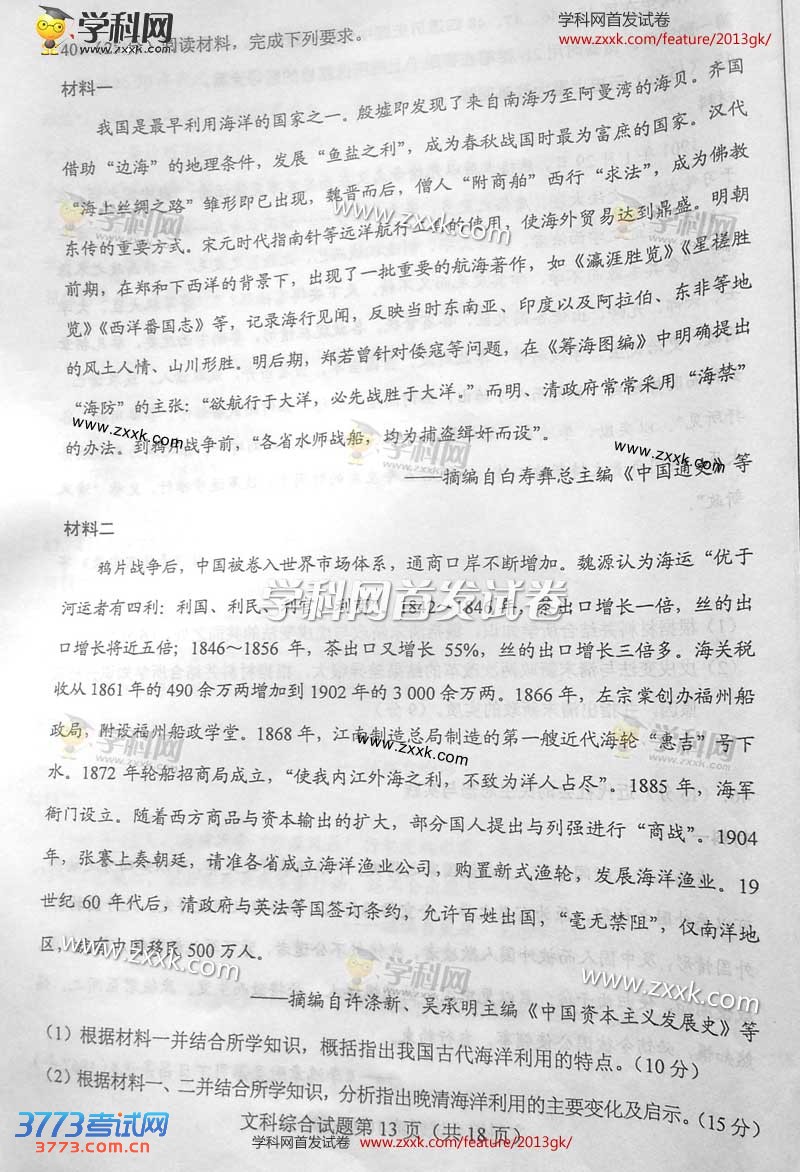 学科网
学科网首发试卷
www.zxxk.com/feature/2013gk/
40 阅读材料，完成下列要求。
材料一
我国是最早利用海洋的国家之一。殷墟即发现了来自南海乃至阿曼湾的海贝。齐国
借助“边海”的地理条件，发展“鱼盐之利”，成为春秋战国时最为富庶的国家。汉代
“海上丝绸之路”雏形即已出现，魏晋而后，僧人“附商舶”西行“求法”，成为佛教
东传的重要方式。宋元时代指南针等远洋航行工具的使用，使海外贸易达到鼎盛。明朝
前期，在郑和下西洋的背景下，出现了一批重要的航海著作，如《瀛涯胜览》《星槎胜
览》《西洋番国志》等，记录海行见闻，反映当时东南亚、印度以及阿拉伯、东非等地
的风土人情、山川形胜。明后期，郑若曾针对倭寇等问题，在《筹海图编》中明确提出
“海防”的主张：“欲航行于大洋，必先战胜于大洋。”而明、清政府常常采用“海禁”
的办法。到鸦片战争前，“各省水师战船，均为捕盗缉奸而设”。
——摘编自白寿彝总主编《中国通史》等
材料二
鸦片战争后，中国被卷入世界市场体系，通商口岸不断增加。魏源认为海运“优于
河运者有四利：利国、利民、利官、利商”。1842～1846 年，茶出口增长一倍，丝的出
口增长将近五倍；1846～1856 年，茶出口又增长 55%，丝的出口增长三倍多。海关税
收从 1861 年的 490 余万两增加到 1902 年的 3 000 余万两。1866 年，左宗棠创办福州船
政局，附设福州船政学堂。1868 年，江南制造总局制造的第一艘近代海轮“惠吉”号下
水。1872 年轮船招商局成立，“使我内江外海之利，不致为洋人占尽”。1885 年，海军
衙门设立。随着西方商品与资本输出的扩大，部分国人提出与列强进行“商战”。1904
年，张謇上奏朝廷，请准各省成立海洋渔业公司，购置新式渔轮，发展海洋渔业。19
世纪 60 年代后，清政府与英法等国签订条约，允许百姓出国，“毫无禁阻”，仅南洋地
区，就有中国移民 500 万人。
——摘编自许涤新、吴承明主编《中国资本主义发展史》等
（1）根据材料一并结合所学知识，概括指出我国古代海洋利用的特点。（10 分）
（2）根据材料一、二并结合所学知识，分析指出晚清海洋利用的主要变化及启示。（15 分）
文科综合试题第 13 页（共 18 页）
学科网首发试卷
www.zxxk.com/feature/2013gk/
3773考试网
www.zxxk.com
www.zxxk.com
学科网首发试卷
www.zxxk.com
www.zxxk.com
www.zxxk.com
学科网
3773.com.cn